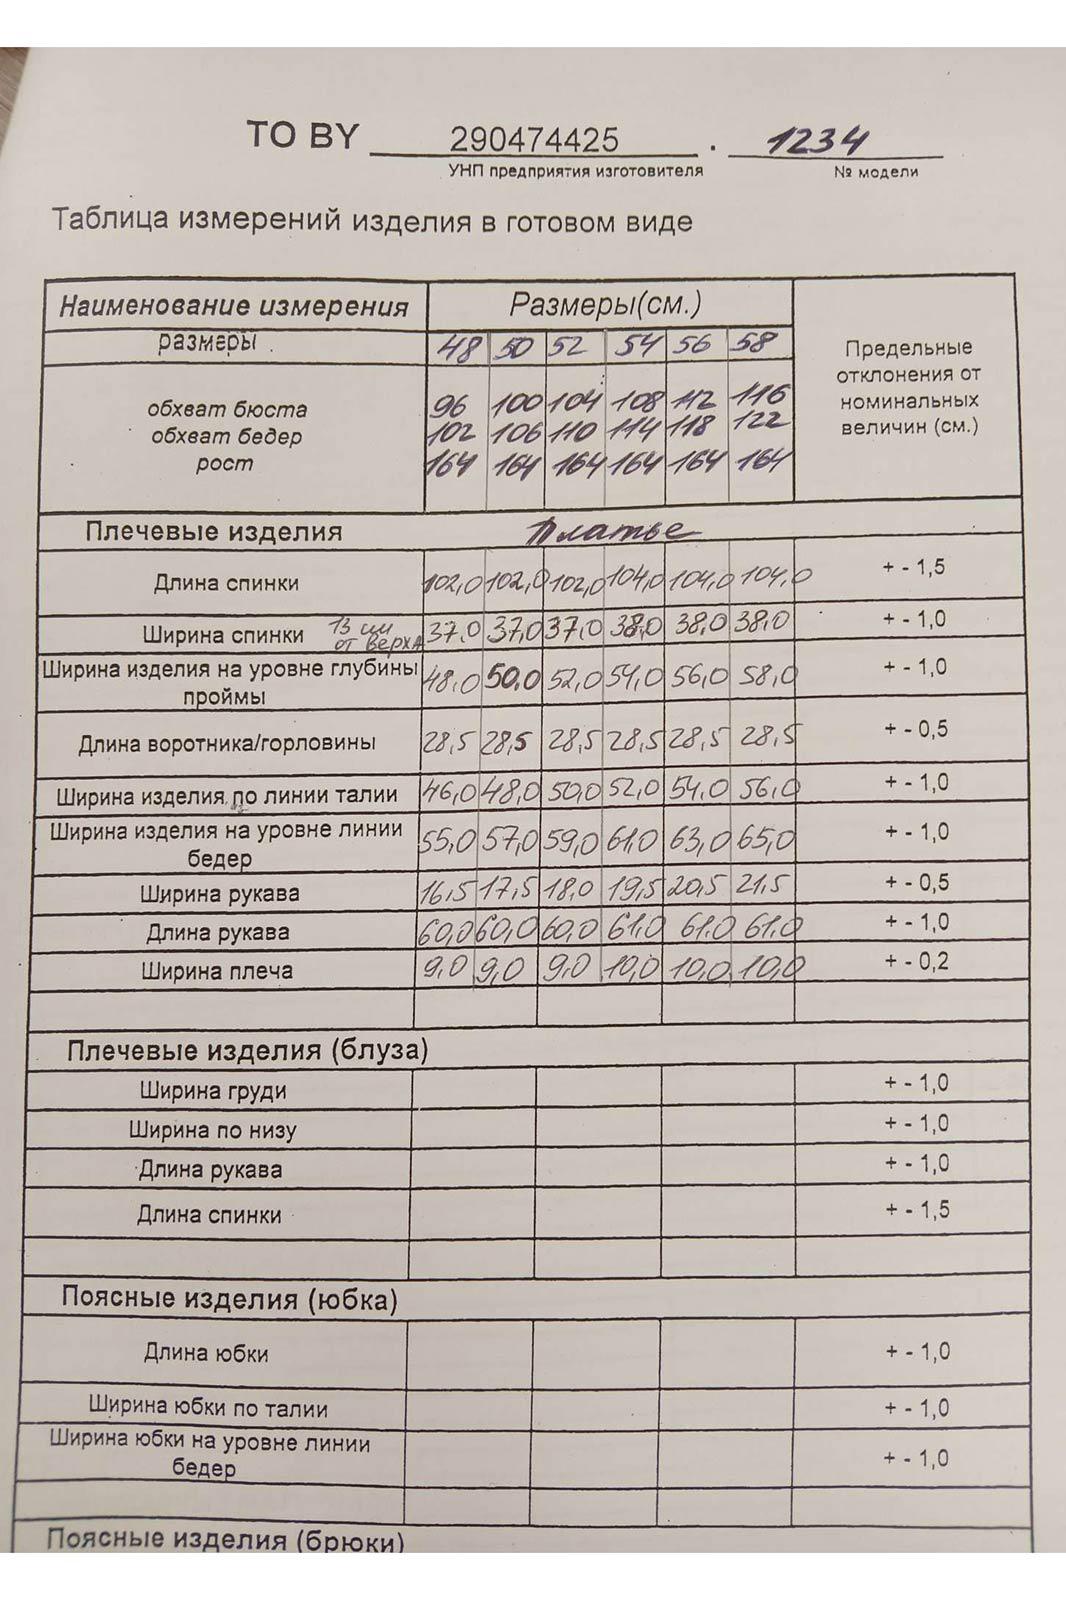 TO BY 290474425 . 1234
УНП предприятия изготовителя № модели
Таблица измерений изделия в готовом виде
Наименование измерения Размеры(см.) Предельные отклонения от номинальных величин (см.)
размеры 48 50 52 54 56 58
обхват бюста 96 100 104 108 112 116
обхват бедер 102 106 110 114 118 122
рост 164 164 164 164 164 164
Плечевые изделия Платье
Длина спинки 102,0 102,0 102,0 104,0 104,0 104,0 + - 1,5
Ширина спинки 13 см от верха 37,0 37,0 37,0 38,0 38,0 38,0 + - 1,0
Ширина изделия на уровне глубины
проймы 48,0 50,0 52,0 54,0 56,0 58,0 + - 1,0
Длина воротника/горловины 28,5 28,5 28,5 28,5 28,5 28,5 + - 0,5
Ширина изделия по линии талии 46,0 48,0 50,0 52,0 54,0 56,0 + - 1,0
Ширина изделия на уровне линии
бедер 55,0 57,0 59,0 61,0 63,0 65,0 + - 1,0
Ширина рукава 16,5 17,5 18,0 19,5 20,5 21,5 + - 0,5
Длина рукава 60,0 60,0 60,0 61,0 61,0 61,0 + - 1,0
Ширина плеча 9,0 9,0 9,0 10,0 10,0 10,0 + - 0,2
Плечевые изделия (блуза)
Ширина груди + - 1,0
Ширина по низу + - 1,0
Длина рукава + - 1,0
Длина спинки + - 1,5
Поясные изделия (юбка)
Длина юбки + - 1,0
Ширина юбки по талии + - 1,0
Ширина юбки на уровне линии
бедер + - 1,0
Поясные изделия (брюки)